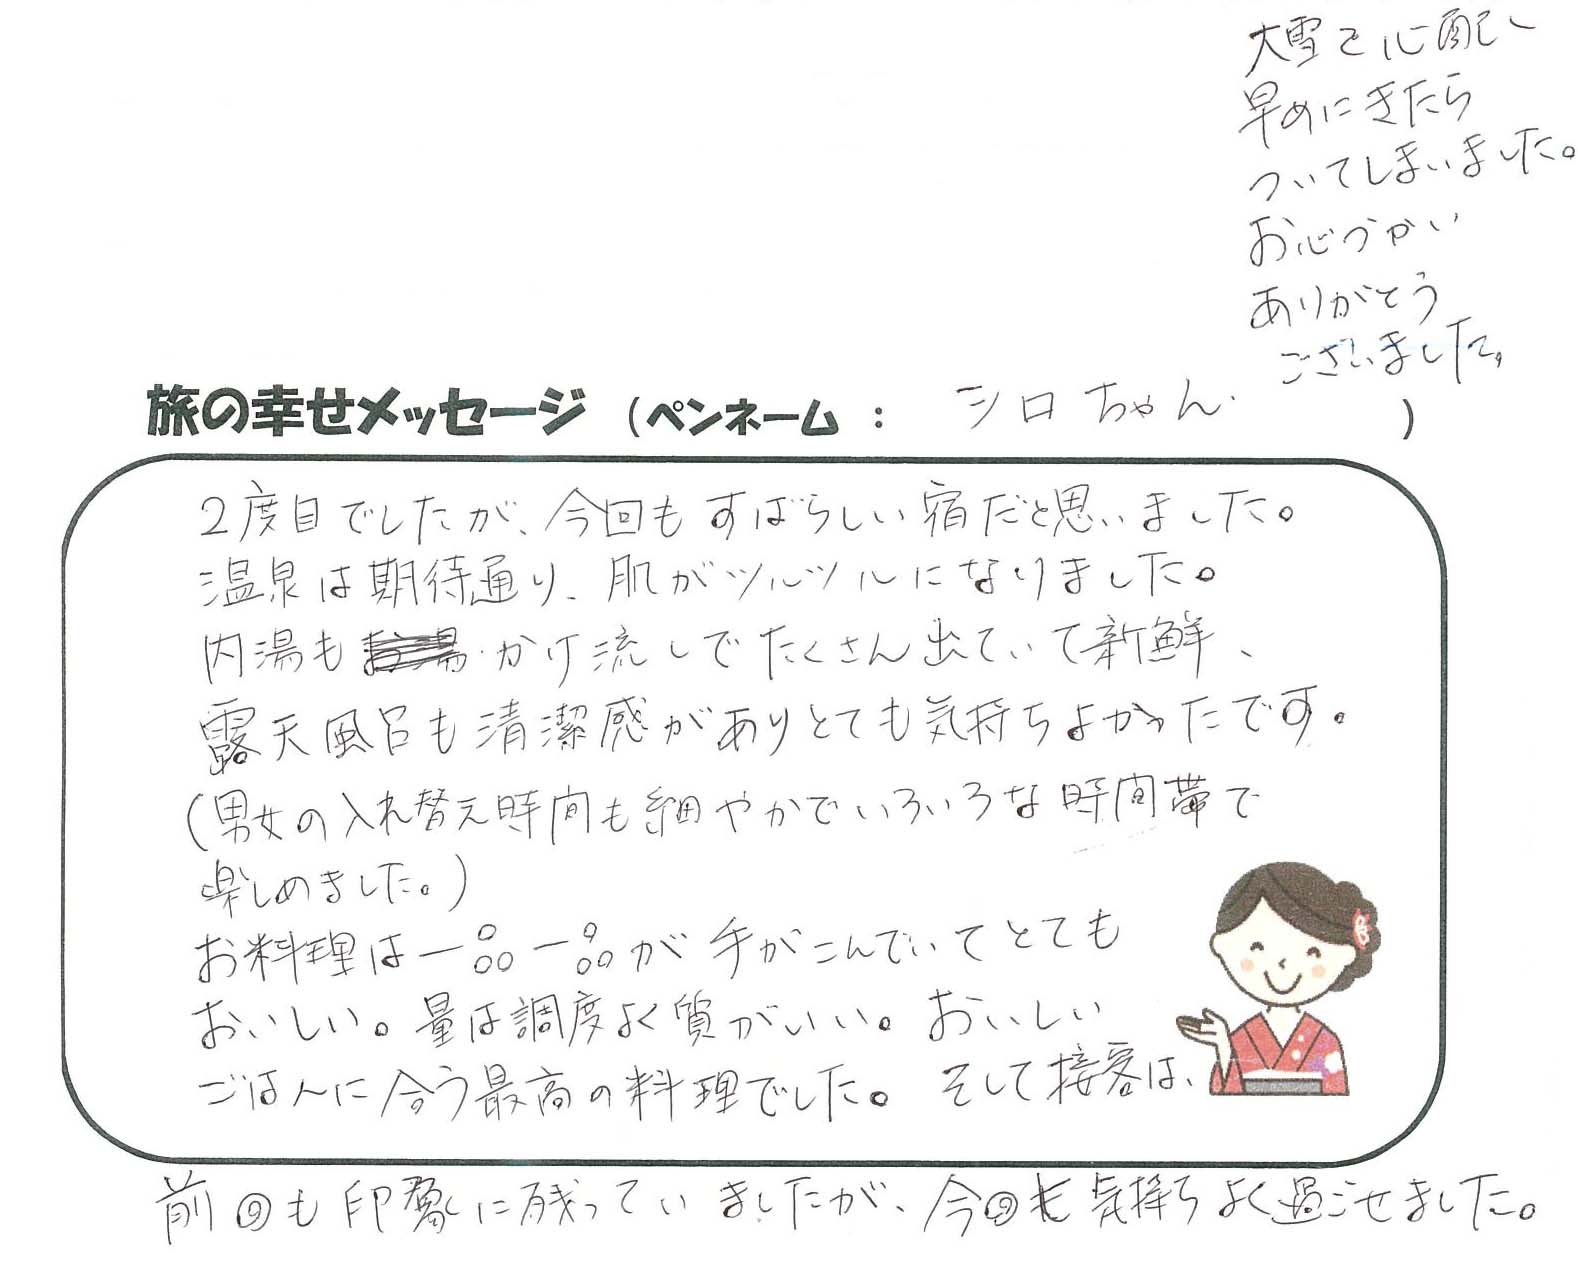 大雪で心配し
早めにきたら
ついてしまいました。
お心づかい
ありがとう
ございました。
旅の幸せメッセージ (ペンネーム : シロちゃん. )
2度目でしたが、今回もすばらしい宿だと思いました。
温泉は期待通り、肌がツルツルになりました。
内湯もかけ流しでたくさん出ていて新鮮、
露天風呂も清潔感がありとても気持ちよかったです。
(男女の入れ替え時間も細やかでいろいろな時間帯で
楽しめました。)
お料理は一品一品が手がこんでいてとても
おいしい。量は調度よく質がいい。おいしい
ごはんに合う最高の料理でした。そして接客は、
前回も印象に残っていましたが、今回も気持ちよく過ごせました。